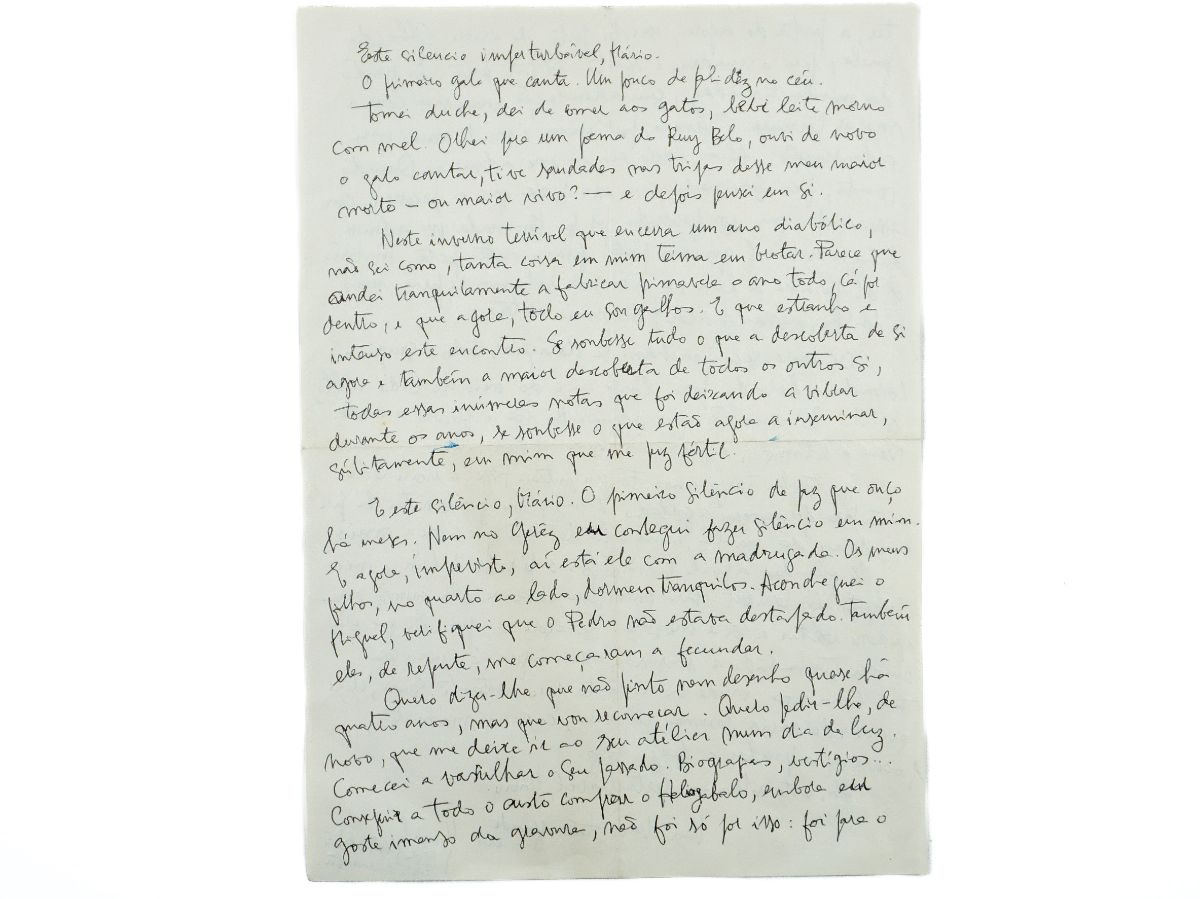 Este silencio imperturbável, Mário.
O primeiro galo que canta. Um pouco de palidez no céu.
Tomei duche, dei de comer aos gatos, bebi leite morno
com mel. Olhei pra um poema do Ruy Belo, ouvi de novo
o galo cantar, tive saudades nas tripas desse meu maior
morto — ou maior vivo? — e depois pensei em si.
Neste inverno terrível que encerra um ano diabólico,
não sei como, tanta coisa em mim teima em brotar. Parece que
andei tranquilamente a fabricar primavera o ano todo, cá por
dentro, e que agora, todo eu sou galhos. E que estranho e
intenso este encontro. Se soubesse tudo o que a descoberta de si
agora é também a maior descoberta de todos os outros si,
todas essas inúmeras notas que foi deixando a vibrar
durante os anos, se soubesse o que estão agora a inseminar,
súbitamente, em mim que me faz fértil.
E este silêncio, Mário. O primeiro silêncio de paz que ouço
há meses. Nem no Gerêz eu consegui fazer silêncio em mim.
E agora, imprevisto, aí está ele com a madrugada. Os meus
filhos, no quarto ao lado, dormem tranquilos. Aconcheguei o
Miguel, verifiquei que o Pedro não estava destapado. Também
eles, de repente, me começaram a fecundar.
Quero dizer-lhe que não pinto nem desenho quase há
quatro anos, mas que vou recomeçar. Quero pedir-lhe, de
novo, que me deixe ir ao seu atélier num dia de luz.
Comecei a vasculhar o seu passado. Biografias, vestígios...
Consegui a todo o custo comprar o Heliogabalo, embora eu
goste imenso da gravura, não foi só por isso: foi pra o